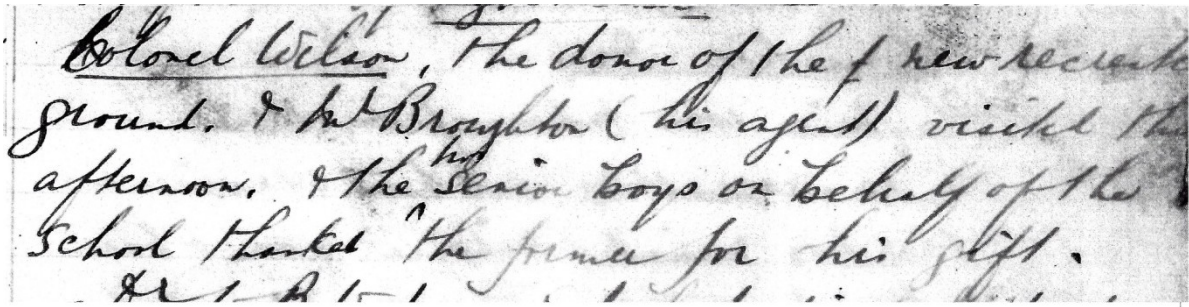 Colonel Wilson, the donor of the new recreat
ground. & Mr Broughton (his agent) visited the
afternoon. & the two senior boys on behalf of the
school thanked the former for his gift.